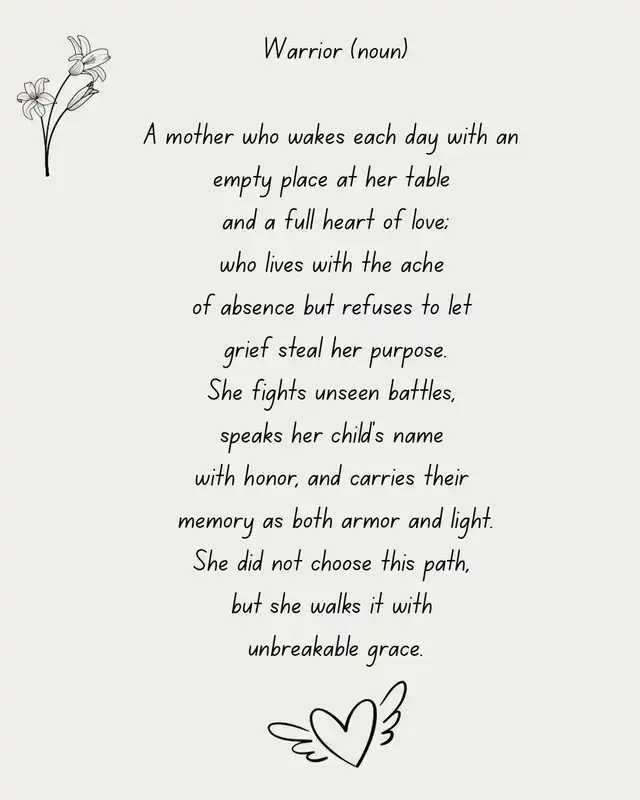 Warrior (noun)
A mother who wakes each day with an
empty place at her table
and a full heart of love;
who lives with the ache
of absence but refuses to let
grief steal her purpose.
She fights unseen battles,
speaks her child's name
with honor, and carries their
memory as both armor and light.
She did not choose this path,
but she walks it with
unbreakable grace.